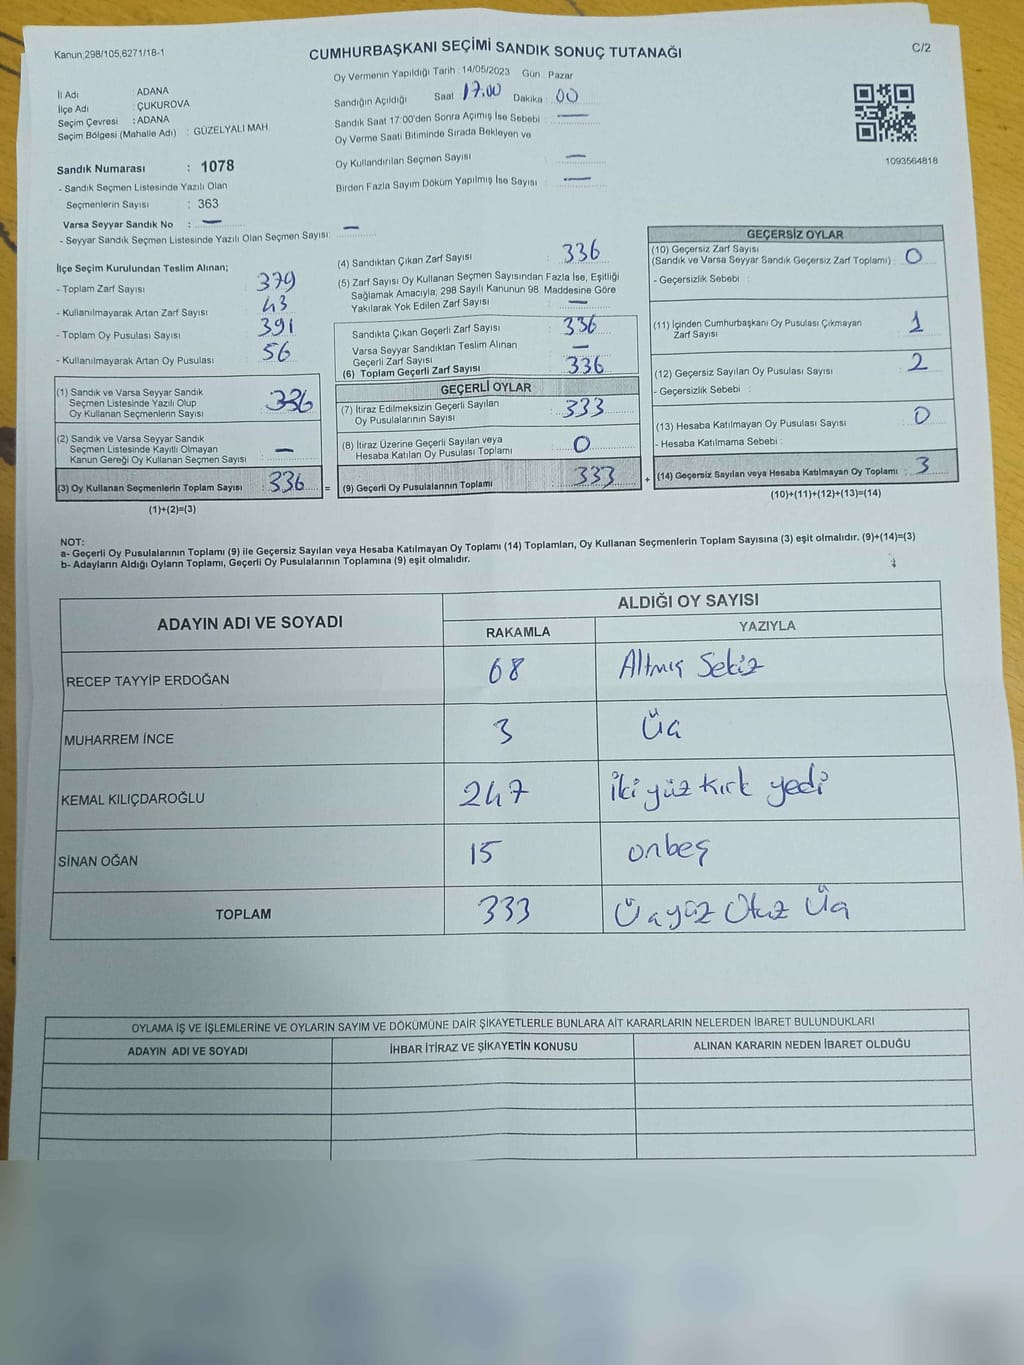 Kanun;298/105,6271/18-1
CUMHURBAŞKANI SEÇİMİ SANDIK SONUÇ TUTANAĞI
C/2
Oy Vermenin Yapıldığı Tarih : 14/05/2023 Gün : Pazar
İl Adı : ADANA
İlçe Adı : ÇUKUROVA
Seçim Çevresi : ADANA
Seçim Bölgesi (Mahalle Adı) : GÜZELYALI MAH.
Sandığın Açıldığı Saat 17.00 Dakika : 00
Sandık Saat 17:00'den Sonra Açımış İse Sebebi : —
Oy Verme Saati Bitiminde Sırada Bekleyen ve
Oy Kullandırılan Seçmen Sayısı : —
Birden Fazla Sayım Döküm Yapılmış İse Sayısı : —
1093564818
Sandık Numarası : 1078
- Sandık Seçmen Listesinde Yazılı Olan
Seçmenlerin Sayısı : 363
Varsa Seyyar Sandık No : —
- Seyyar Sandık Seçmen Listesinde Yazılı Olan Seçmen Sayısı: —
İlçe Seçim Kurulundan Teslim Alınan;
- Toplam Zarf Sayısı : 379
- Kullanılmayarak Artan Zarf Sayısı : 43
- Toplam Oy Pusulası Sayısı : 391
- Kullanılmayarak Artan Oy Pusulası : 56
(1) Sandık ve Varsa Seyyar Sandık
Seçmen Listesinde Yazılı Olup
Oy Kullanan Seçmenlerin Sayısı : 336
(2) Sandık ve Varsa Seyyar Sandık
Seçmen Listesinde Kayıtlı Olmayan
Kanun Gereği Oy Kullanan Seçmen Sayısı : —
(3) Oy Kullanan Seçmenlerin Toplam Sayısı : 336 =
(1)+(2)=(3)
(4) Sandıktan Çıkan Zarf Sayısı : 336
(5) Zarf Sayısı Oy Kullanan Seçmen Sayısından Fazla İse, Eşitliği
Sağlamak Amacıyla; 298 Sayılı Kanunun 98. Maddesine Göre
Yakılarak Yok Edilen Zarf Sayısı : —
Sandıkta Çıkan Geçerli Zarf Sayısı : 336
Varsa Seyyar Sandıktan Teslim Alınan
Geçerli Zarf Sayısı : —
(6) Toplam Geçerli Zarf Sayısı : 336
GEÇERLİ OYLAR
(7) İtiraz Edilmeksizin Geçerli Sayılan
Oy Pusulalarının Sayısı : 333
(8) İtiraz Üzerine Geçerli Sayılan veya
Hesaba Katılan Oy Pusulası Toplamı : 0
(9) Geçerli Oy Pusulalarının Toplamı : 333 +
GEÇERSİZ OYLAR
(10) Geçersiz Zarf Sayısı
(Sandık ve Varsa Seyyar Sandık Geçersiz Zarf Toplamı) : 0
- Geçersizlik Sebebi :
(11) İçinden Cumhurbaşkanı Oy Pusulası Çıkmayan
Zarf Sayısı : 1
(12) Geçersiz Sayılan Oy Pusulası Sayısı : 2
- Geçersizlik Sebebi :
(13) Hesaba Katılmayan Oy Pusulası Sayısı : 0
- Hesaba Katılmama Sebebi :
(14) Geçersiz Sayılan veya Hesaba Katılmayan Oy Toplamı : 3
(10)+(11)+(12)+(13)=(14)
NOT:
a- Geçerli Oy Pusulalarının Toplamı (9) ile Geçersiz Sayılan veya Hesaba Katılmayan Oy Toplamı (14) Toplamları, Oy Kullanan Seçmenlerin Toplam Sayısına (3) eşit olmalıdır. (9)+(14)=(3)
b- Adayların Aldığı Oyların Toplamı, Geçerli Oy Pusulalarının Toplamına (9) eşit olmalıdır.
ADAYIN ADI VE SOYADI
ALDIĞI OY SAYISI
RAKAMLA YAZIYLA
RECEP TAYYİP ERDOĞAN 68 Altmış Sekiz
MUHARREM İNCE 3 Üç
KEMAL KILIÇDAROĞLU 247 İki yüz kırk yedi
SİNAN OĞAN 15 onbeş
TOPLAM 333 Üçyüz Otuz Üç
OYLAMA İŞ VE İŞLEMLERİNE VE OYLARIN SAYIM VE DÖKÜMÜNE DAİR ŞİKAYETLERLE BUNLARA AİT KARARLARIN NELERDEN İBARET BULUNDUKLARI
ADAYIN ADI VE SOYADI İHBAR İTİRAZ VE ŞİKAYETİN KONUSU ALINAN KARARIN NEDEN İBARET OLDUĞU